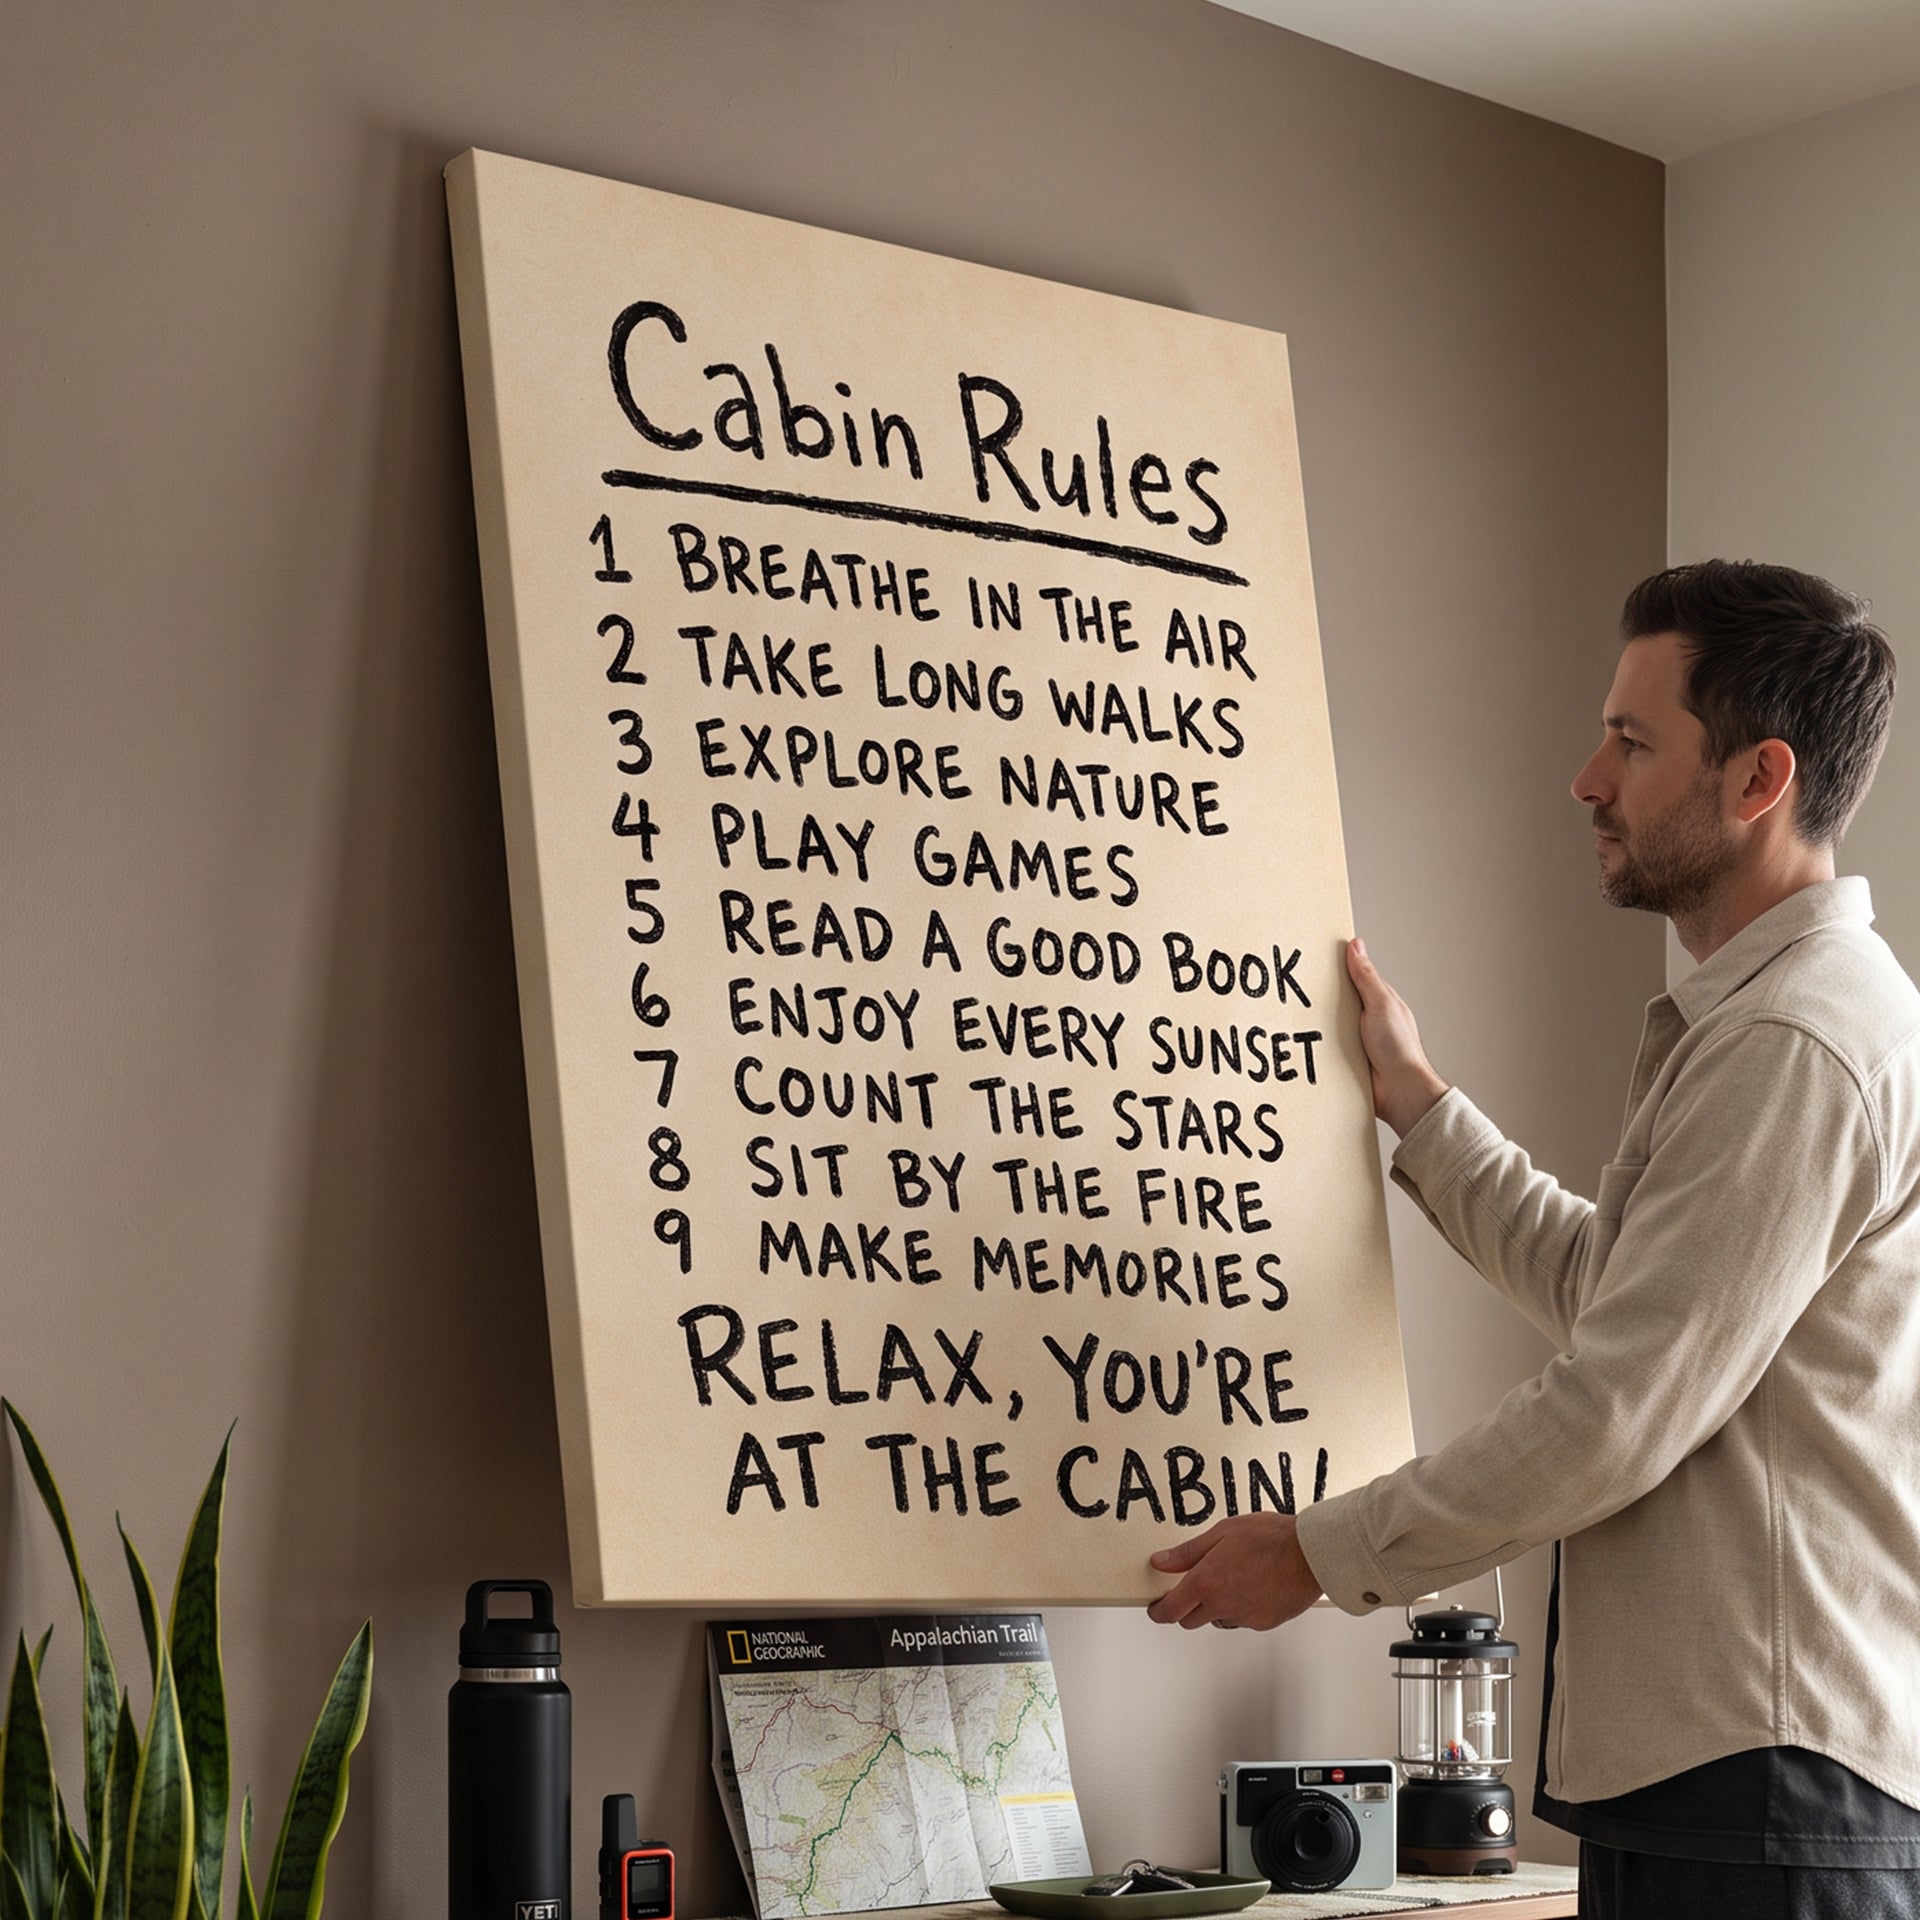 Cabin Rules
1 BREATHE IN THE AIR
2 TAKE LONG WALKS
3 EXPLORE NATURE
4 PLAY GAMES
5 READ A GOOD BOOK
6 ENJOY EVERY SUNSET
7 COUNT THE STARS
8 SIT BY THE FIRE
9 MAKE MEMORIES
RELAX, YOU'RE
AT THE CABIN!
NATIONAL
GEOGRAPHIC
Appalachian Trail
YETI